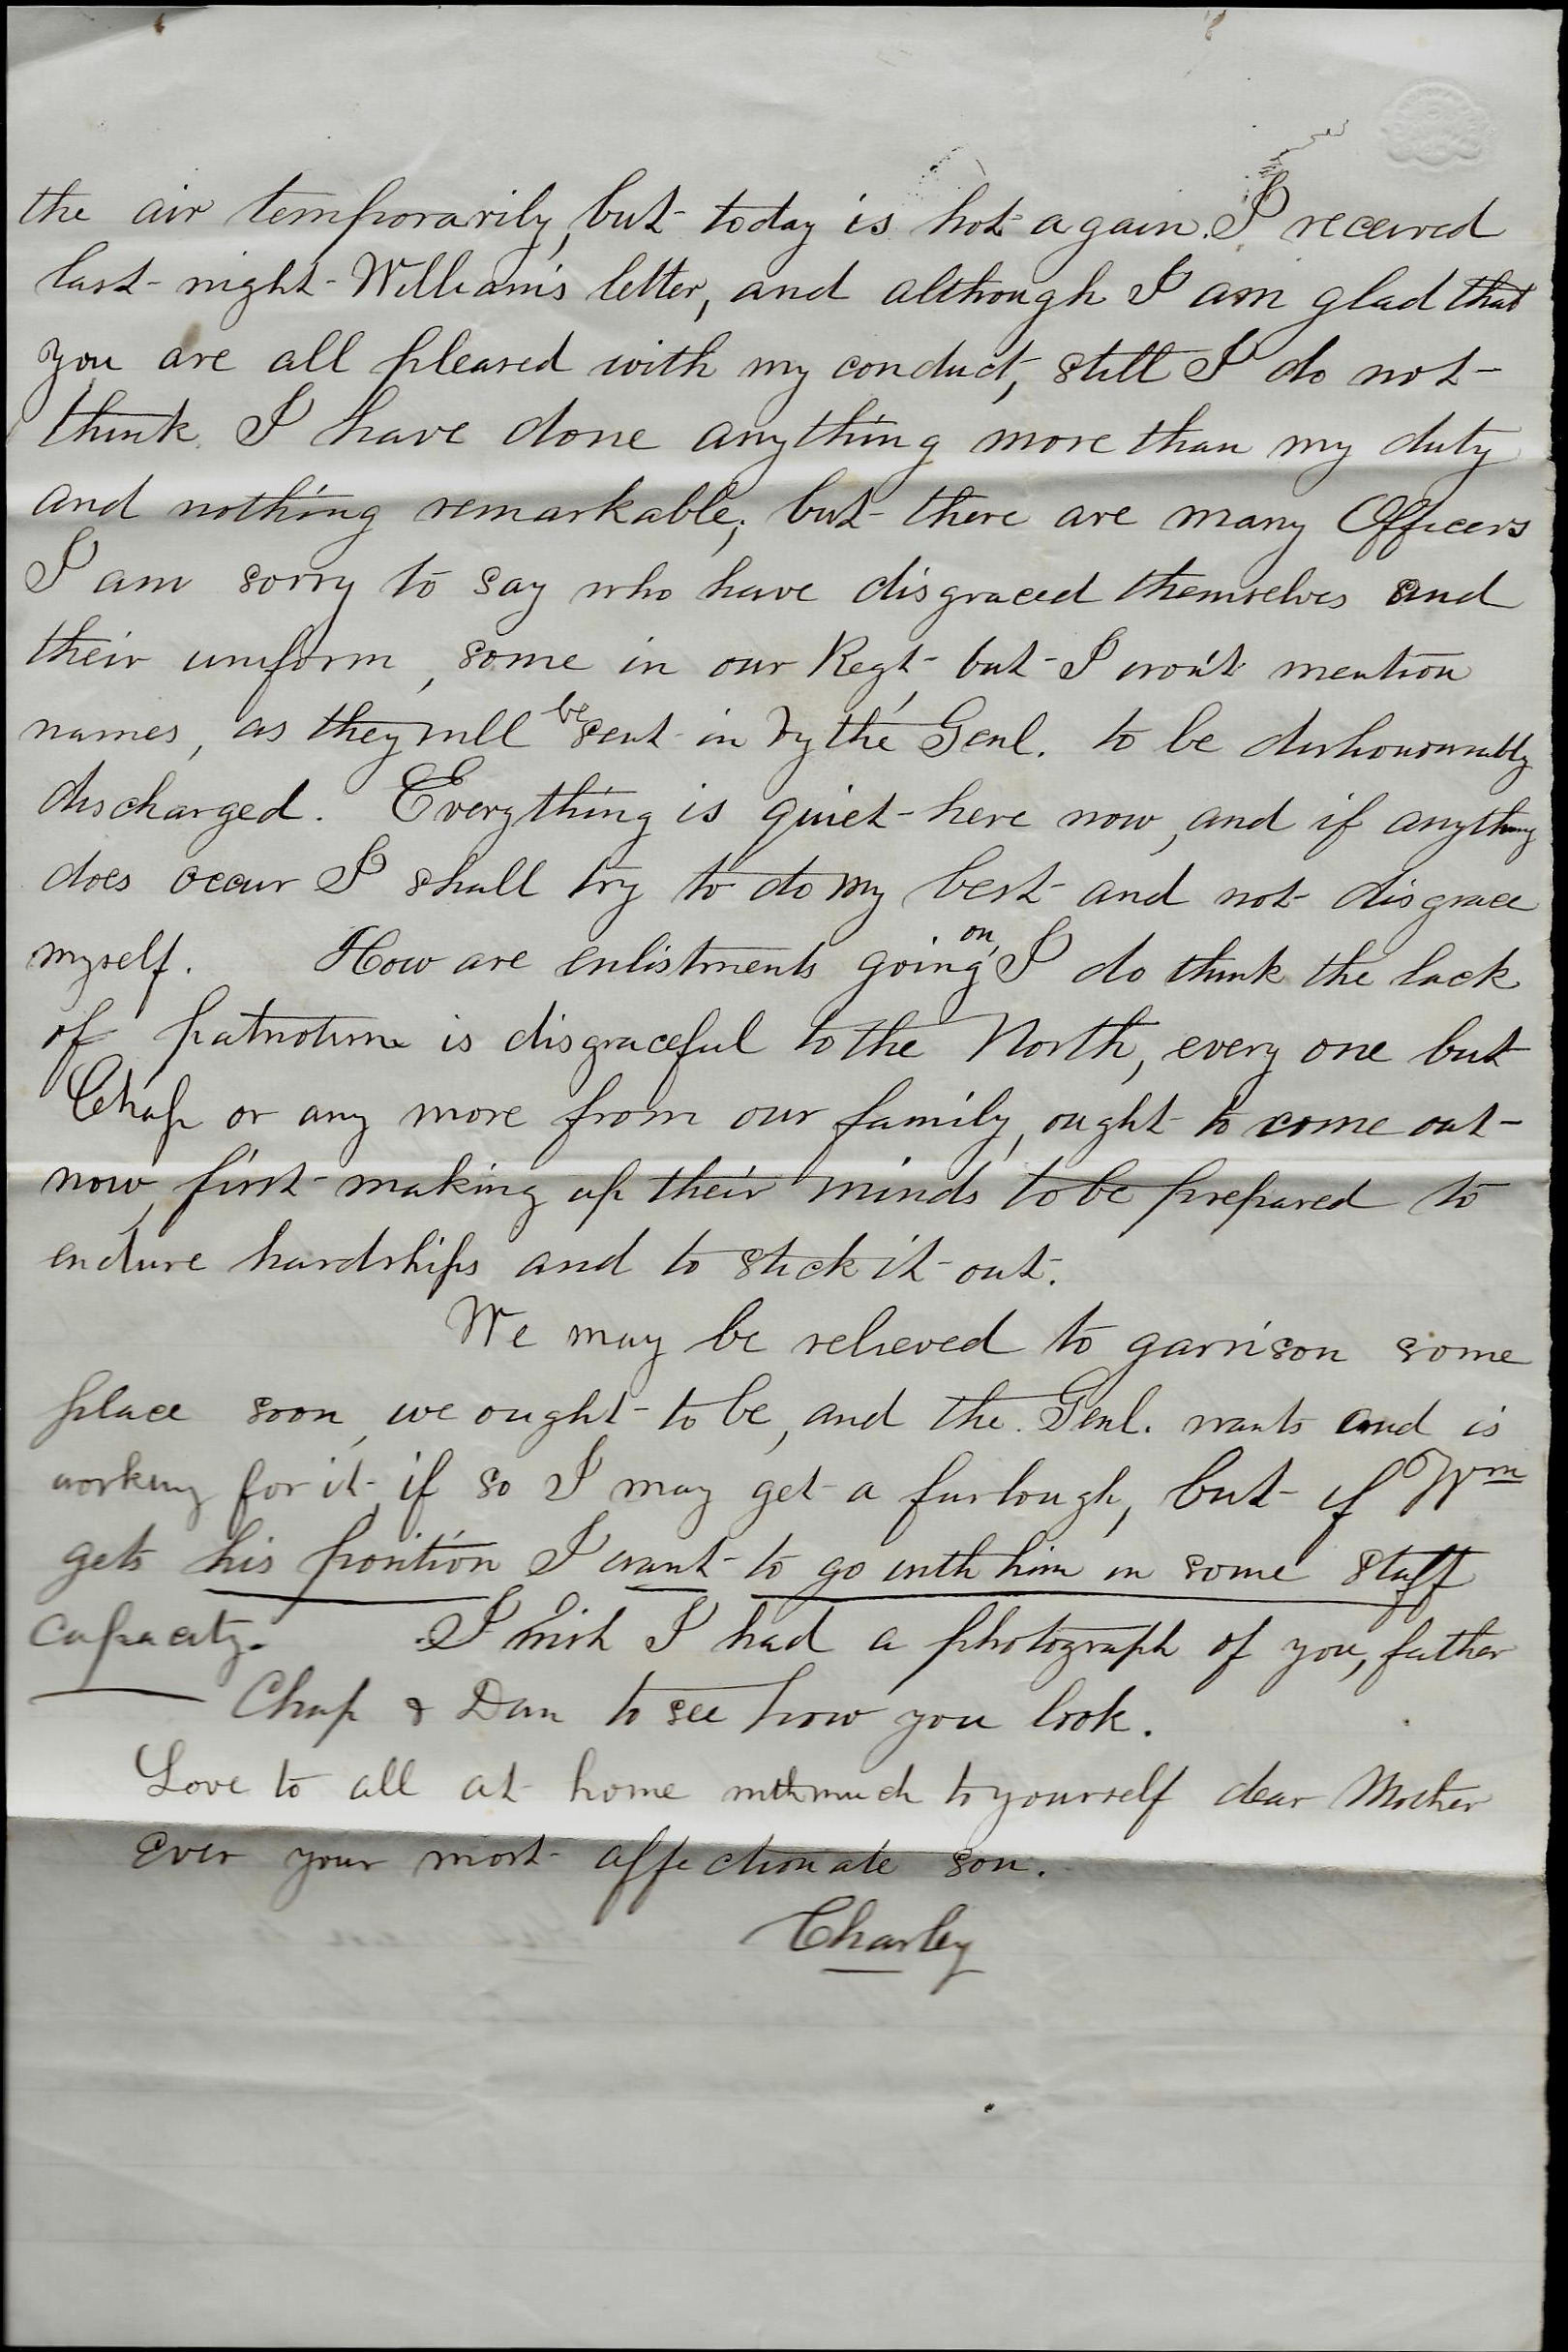 the air temporarily, but today is hot again. I received
last night Williams letter, and although I am glad that
you are all pleased with my conduct, still I do not
think I have done anything more than my duty
and nothing remarkable; but there are many Officers
I am sorry to say who have disgraced themselves and
their uniform, some in our Regt, but I won't mention
names, as they will be sent in by the Genl. to be dishonourably
discharged. Everything is quiet here now, and if anything
does occur I shall try to do my best and not disgrace
myself. How are enlistments going on, I do think the lack
of patriotism is disgraceful to the North, every one but
Chap or any more from our family, ought to come out
now, first making up their minds to be prepared to
endure hardships and to stick it out.
We may be relieved to garrison some
place soon, we ought to be, and the Genl. wants and is
working for it, if so I may get a furlough, but if Wm
gets his position I want to go with him in some staff
capacity. I wish I had a photograph of you, father
Chap & Dan to see how you look.
Love to all at home with much to yourself dear Mother
Ever your most affectionate son.
Charley